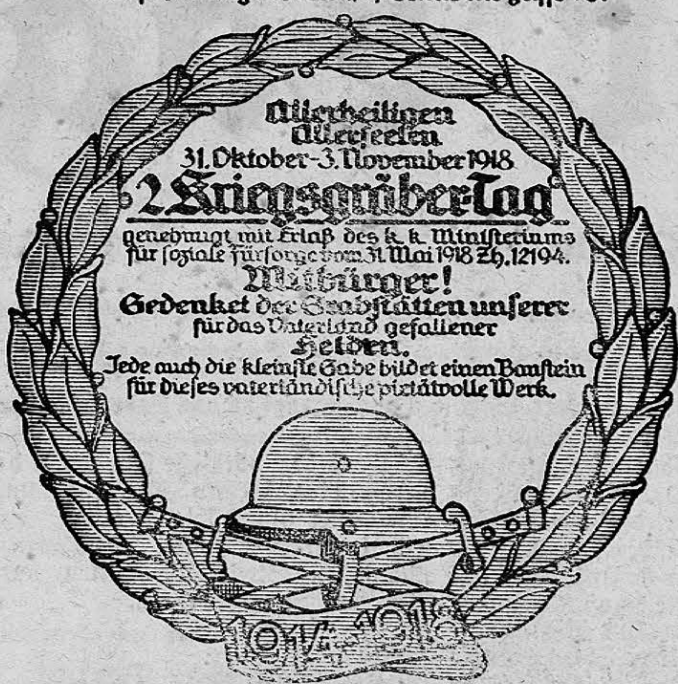 Allerheiligen
Allerseelen
31. Oktober-3. November 1918
2 Kriegsgräber-Tag
genehmigt mit Erlaß des k. k. Ministeriums
für soziale Fürsorge vom 31. Mai 1918 Zh. 12194.
Mitbürger!
Gedenket der Grabstätten unserer
für das Vaterland gefallener
Helden.
Jede auch die kleinste Gabe bildet einen Baustein
für dieses vaterländische pietätvolle Werk.
1914-1918